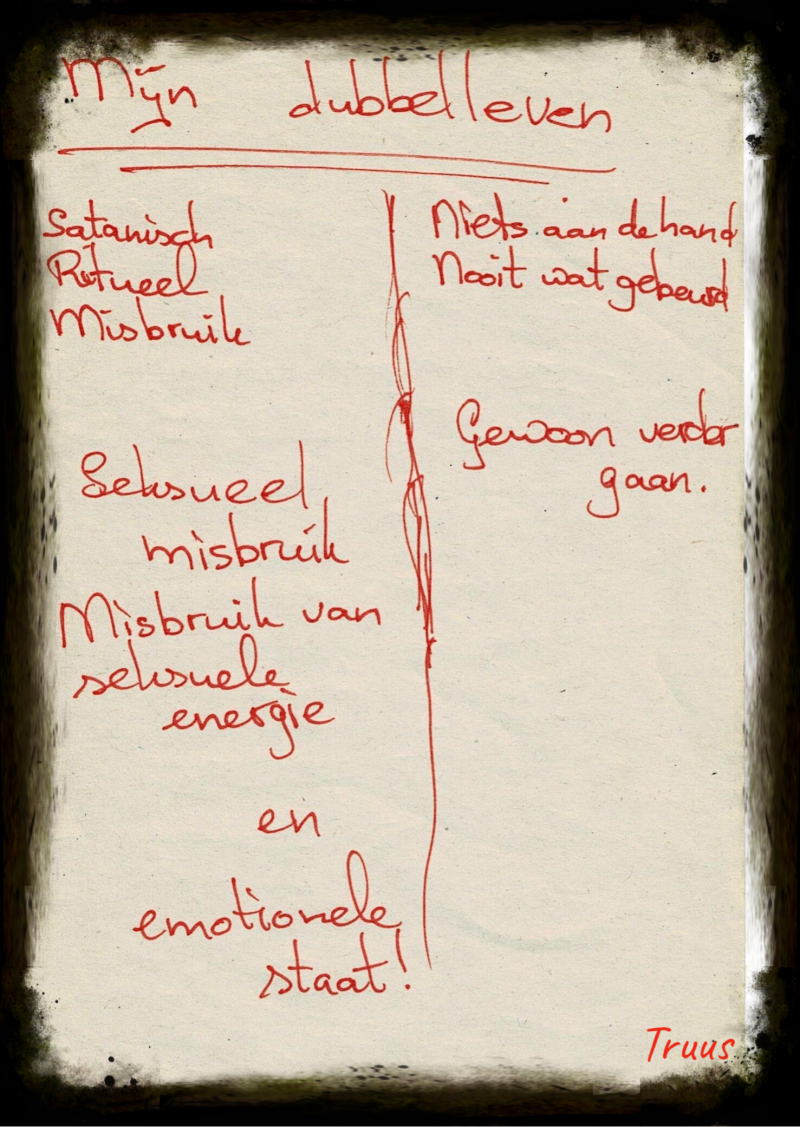 Mijn dubbelleven
Satanisch
Ritueel
Misbruik
Seksueel
misbruik
Misbruik van
seksuele
energie
en
emotionele
staat!
Niets aan de hand
Nooit wat gebeurd
Gewoon verder
gaan.
Truus